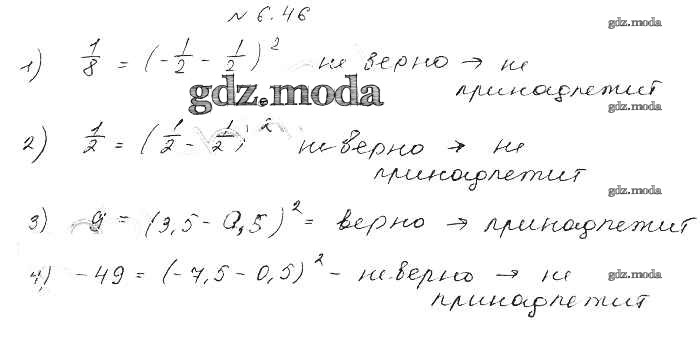 № 6.46
gdz.moda
1) 1/8 = (-1/2 - 1/2)² не верно → не
принадлежит
gdz.moda
gdz.moda
2) 1/2 = (1/2 - 1/2)² не верно → не
принадлежит
gdz.moda
3) 9 = (3,5 - 0,5)² = верно → принадлежит
4) -49 = (-7,5 - 0,5)² - не верно → не
gdz.moda
принадлежит